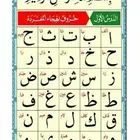 الدرس الأول حروف الهجاء المفردة
ا ب ت ث ج
ح خ د ذ ر
ز س ش ص ض
ط ظ ع غ ف
ق ك ل م ن